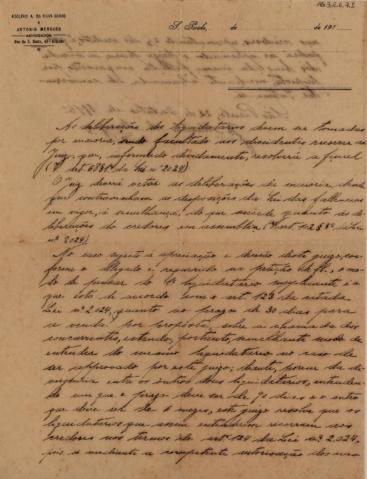 ADOLPHO A. DA SILVA GORDO
E
ANTONIO MERCADO
ADVOGADOS
S. Paulo, de de 191
As deliberações dos liquidatarios devem ser tomadas
por maioria, sendo facultado aos dissidentes recorrer ao
juiz, que, informado devidamente, resolverá a final
nº 2024)
O juiz deverá vetar as deliberações da maioria, desde
que contravenham as disposições da Lei das fallencias
em vigor, á semelhança do que succede quanto ás de-
liberações de credores em assembléa
nº 2024)
No caso sujeito á apreciação e decisão deste juizo, con-
forme o allegado e requerido na petição de fl., o mo-
do de pensar do liquidatario supplicante é o
que está de accordo com o art 123 da citada
Lei nº 2.024, quanto ao prazo de 30 dias para
a venda por proposta, sobre a chamada dos
concurrentes, estando, portanto, semelhante modo de
entender do mesmo liquidatario no caso de
ser approvado por este juizo; havendo, porem, di-
vergencia entre os outros dous liquidatarios, entenden-
do um que o prazo deve ser de 90 dias e o outro
que deve ser de 6 mezes, este juizo resolve que os
liquidatarios que assim entenderem recorram aos
credores nos termos do art 124 da Lei nº 2.024,
pois só mediante a competente autorisação dos mes-